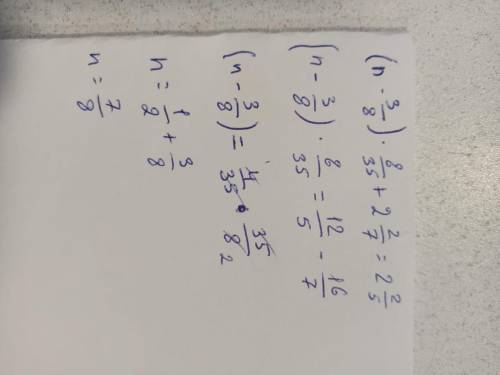 (n - 3/8) · 8/35 + 2 2/7 = 2 2/5
(n - 3/8) · 8/35 = 12/5 - 16/7
(n - 3/8) = 4/35 · 35/8 2
n = 1/2 + 3/8
n = 7/8